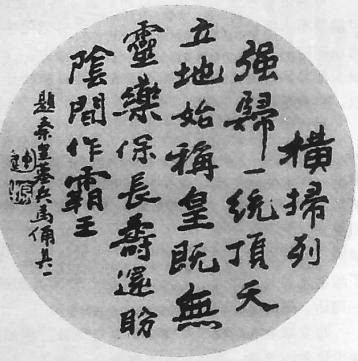 橫掃列
强歸一統頂天
立地始稱皇既無
靈藥保長壽還盼
陰間作霸王
題秦皇陵兵馬俑其一